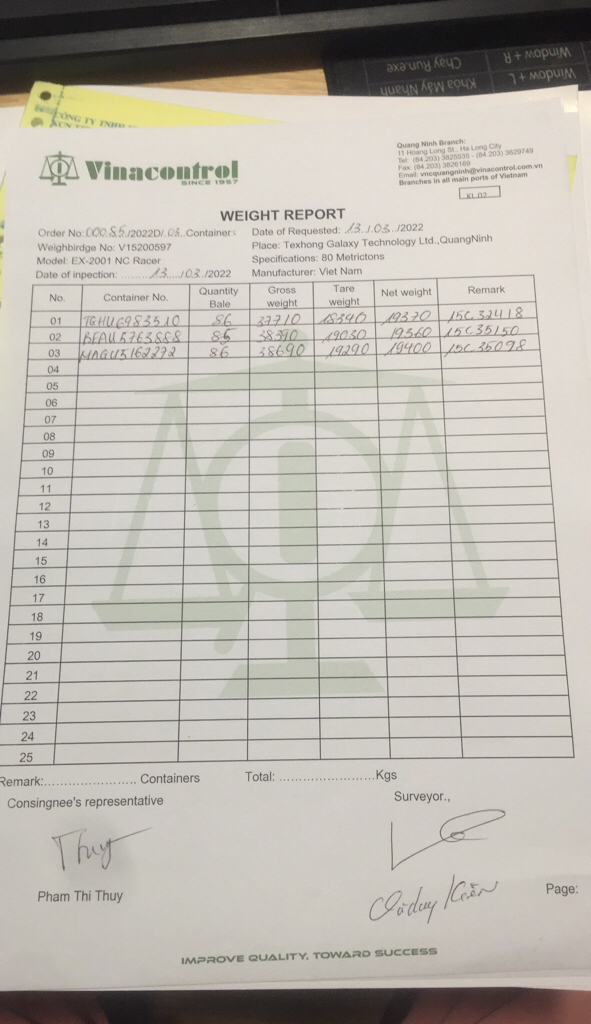 Window + R
Chạy Run.exe
Window + L
Khóa Máy Nhanh
CÔNG TY TNHH
Vinacontrol
SINCE 1957
Quang Ninh Branch:
11 Hoang Long St., Ha Long City
Tel: (84.203) 3825535 - (84.203) 3629749
Fax: (84.203) 3826169
Email: vncquangninh@vinacontrol.com.vn
Branches in all main ports of Vietnam
KL 02
WEIGHT REPORT
Order No: 00085/2022D/.03..Containers Date of Requested: 13./.03../2022
Weighbirdge No: V15200597 Place: Texhong Galaxy Technology Ltd.,QuangNinh
Model: EX-2001 NC Racer Specifications: 80 Metrictons
Date of inpection: .........13..../03./2022 Manufacturer: Viet Nam
No. Container No. Quantity Bale Gross weight Tare weight Net weight Remark
01 TGHU6983510 86 37710 18340 19370 15C.32418
02 BEAU5763888 85 38590 19030 19560 15C.35150
03 MAGU5162272 86 38690 19290 19400 15C.35098
04
05
06
07
08
09
10
11
12
13
14
15
16
17
18
19
20
21
22
23
24
25
Remark:....................... Containers Total: ........................Kgs
Consingnee's representative Surveyor.,
Thuy
Pham Thi Thuy Page:
IMPROVE QUALITY, TOWARD SUCCESS